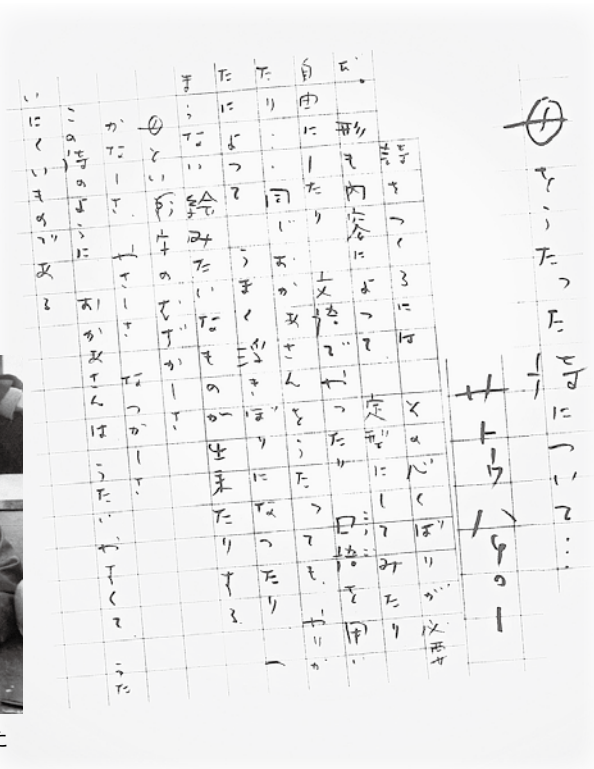 をうたった詩について…
サトウハチロー
詩をつくるには 心くばりが必要
だ。形も内容によって定型にしてみたり
自由にしたり 文語でやったり 口語を用い
たり・・同じおかあさんをうたっても やりか
たによって うまく浮きぼりになったり つ
まらない 絵みたいなものが出来たりする
という字のむずかしさ
かなしさ やさしさ なつかしさ
この詩のように おかあさんは うたいやすくて うた
いにくいものである